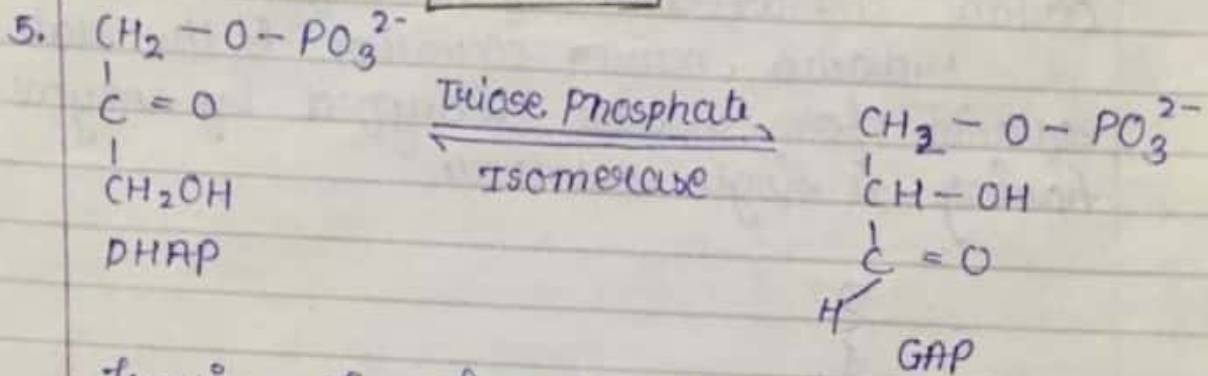 5. CH₂ - O - PO₃²⁻
C = O
CH₂OH
DHAP
Triose Phosphate
Isomerase
CH₂ - O - PO₃²⁻
CH - OH
C = O
H
GAP